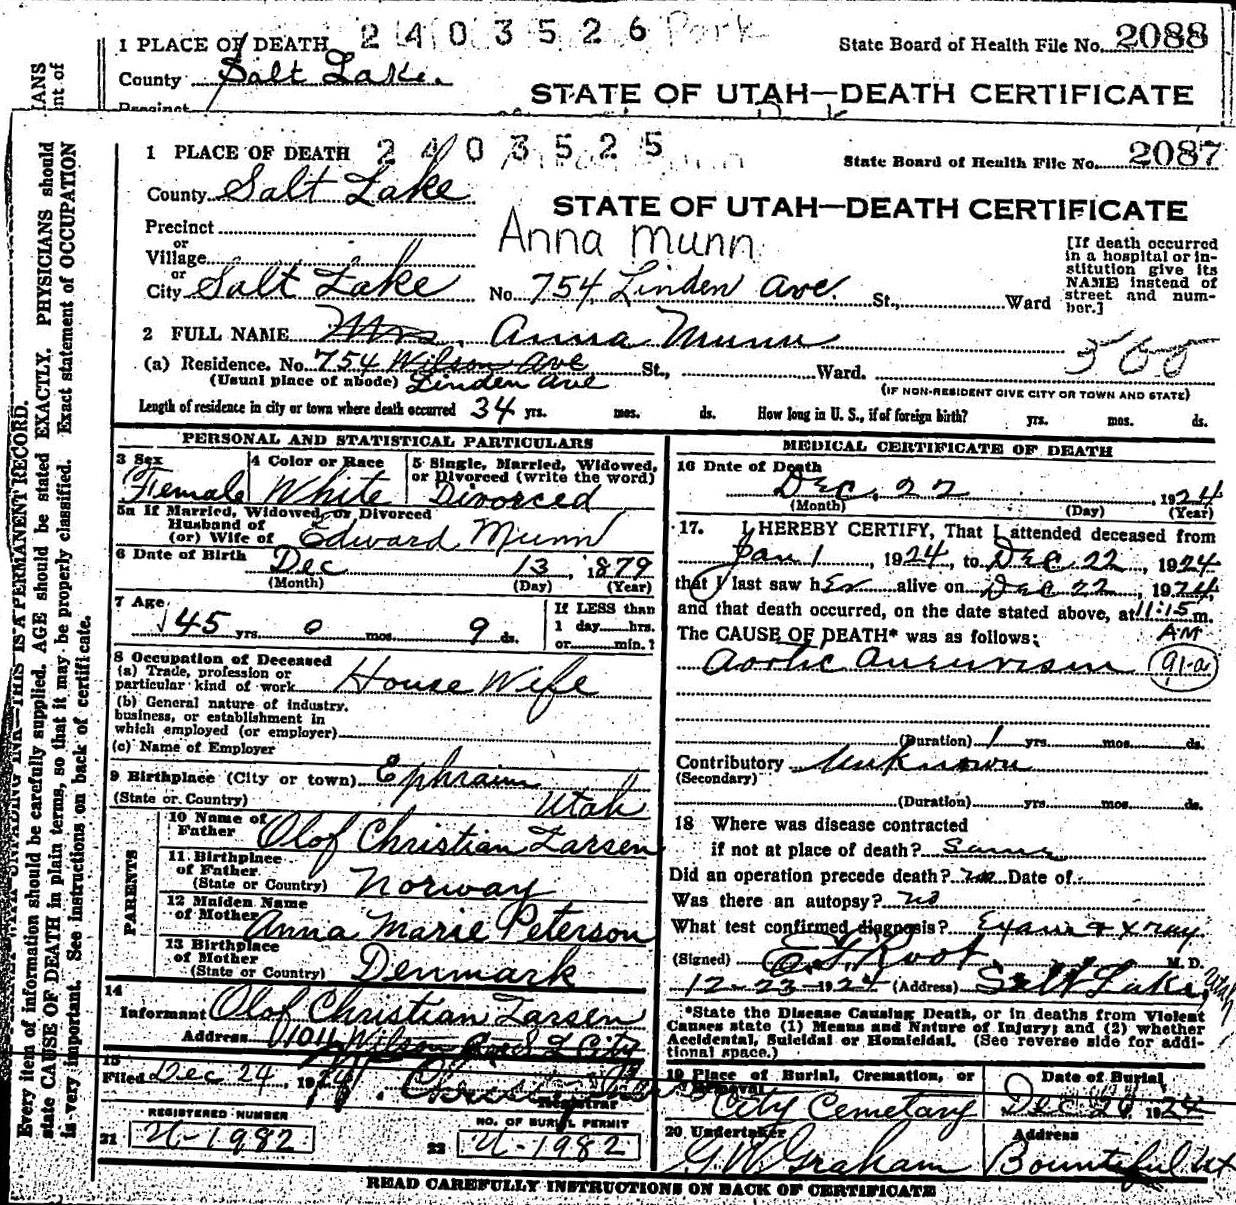 1 PLACE OF DEATH 2 4 0 3 5 2 6 Park State Board of Health File No. 2088
County Salt Lake.
STATE OF UTAH—DEATH CERTIFICATE
Precinct
IANS
nt of
1 PLACE OF DEATH 2 4 0 3 5 2 5 State Board of Health File No. 2087
County Salt Lake
STATE OF UTAH—DEATH CERTIFICATE
Precinct
Anna Munn
or
Village
or
City Salt Lake No. 754 Linden Ave. St., Ward
[If death occurred
in a hospital or in-
stitution give its
NAME instead of
street and num-
ber.]
2 FULL NAME Mrs. Anna Munn
500
(a) Residence. No. 754 Wilson Ave St., Ward.
(Usual place of abode) Linden Ave (IF NON-RESIDENT GIVE CITY OR TOWN AND STATE)
Length of residence in city or town where death occurred 34 yrs. mos. ds. How long in U. S., if of foreign birth? yrs. mos. ds.
PERSONAL AND STATISTICAL PARTICULARS
3 Sex 4 Color or Race 5 Single, Married, Widowed,
or Divorced (write the word)
Female White Divorced
5a If Married, Widowed, or Divorced
Husband of
(or) Wife of Edward Munn
6 Date of Birth Dec 13, 1879
(Month) (Day) (Year)
7 Age 45 yrs. 0 mos. 9 ds.
If LESS than
1 day hrs.
or min.?
8 Occupation of Deceased
(a) Trade, profession or
particular kind of work House Wife
(b) General nature of industry,
business, or establishment in
which employed (or employer)
(c) Name of Employer
9 Birthplace (City or town) Ephraim
(State or Country) Utah
PARENTS
10 Name of
Father Olof Christian Larsen
11 Birthplace
of Father
(State or Country) Norway
12 Maiden Name
of Mother Anna Marie Peterson
13 Birthplace
of Mother
(State or Country) Denmark
14
Informant Olof Christian Larsen
Address 1011 Wilson Ave S L City
15
Filed Dec 24, 1924
Registrar
REGISTERED NUMBER
21 U-1982
NO. OF BURIAL PERMIT
22 U-1982
MEDICAL CERTIFICATE OF DEATH
16 Date of Death
Dec. 22, 1924
(Month) (Day) (Year)
17. I HEREBY CERTIFY, That I attended deceased from
Jan 1, 1924, to Dec 22, 1924
that I last saw her alive on Dec 22, 1924,
and that death occurred, on the date stated above, at 11:15 m.
AM
The CAUSE OF DEATH* was as follows:
Aortic Aneurism 91-a
(Duration) 1 yrs. mos. ds.
Contributory Unknown
(Secondary)
(Duration) yrs. mos. ds.
18 Where was disease contracted
if not at place of death? Same
Did an operation precede death? no Date of
Was there an autopsy? no
What test confirmed diagnosis? Exam & x ray.
(Signed) E. G. Root M. D.
12-23-1924 (Address) Salt Lake, Utah
*State the Disease Causing Death, or in deaths from Violent
Causes state (1) Means and Nature of Injury; and (2) whether
Accidental, Suicidal or Homicidal. (See reverse side for addi-
tional space.)
19 Place of Burial, Cremation, or
Removal Date of Burial
City Cemetary Dec 24 1924
20 Undertaker Address
G.W. Graham Bountiful Ut
READ CAREFULLY INSTRUCTIONS ON BACK OF CERTIFICATE
WITH UNFADING INK—THIS IS A PERMANENT RECORD.
Every item of information should be carefully supplied. AGE should be stated EXACTLY. PHYSICIANS should
state CAUSE OF DEATH in plain terms, so that it may be properly classified. Exact statement of OCCUPATION
is very important. See instructions on back of certificate.